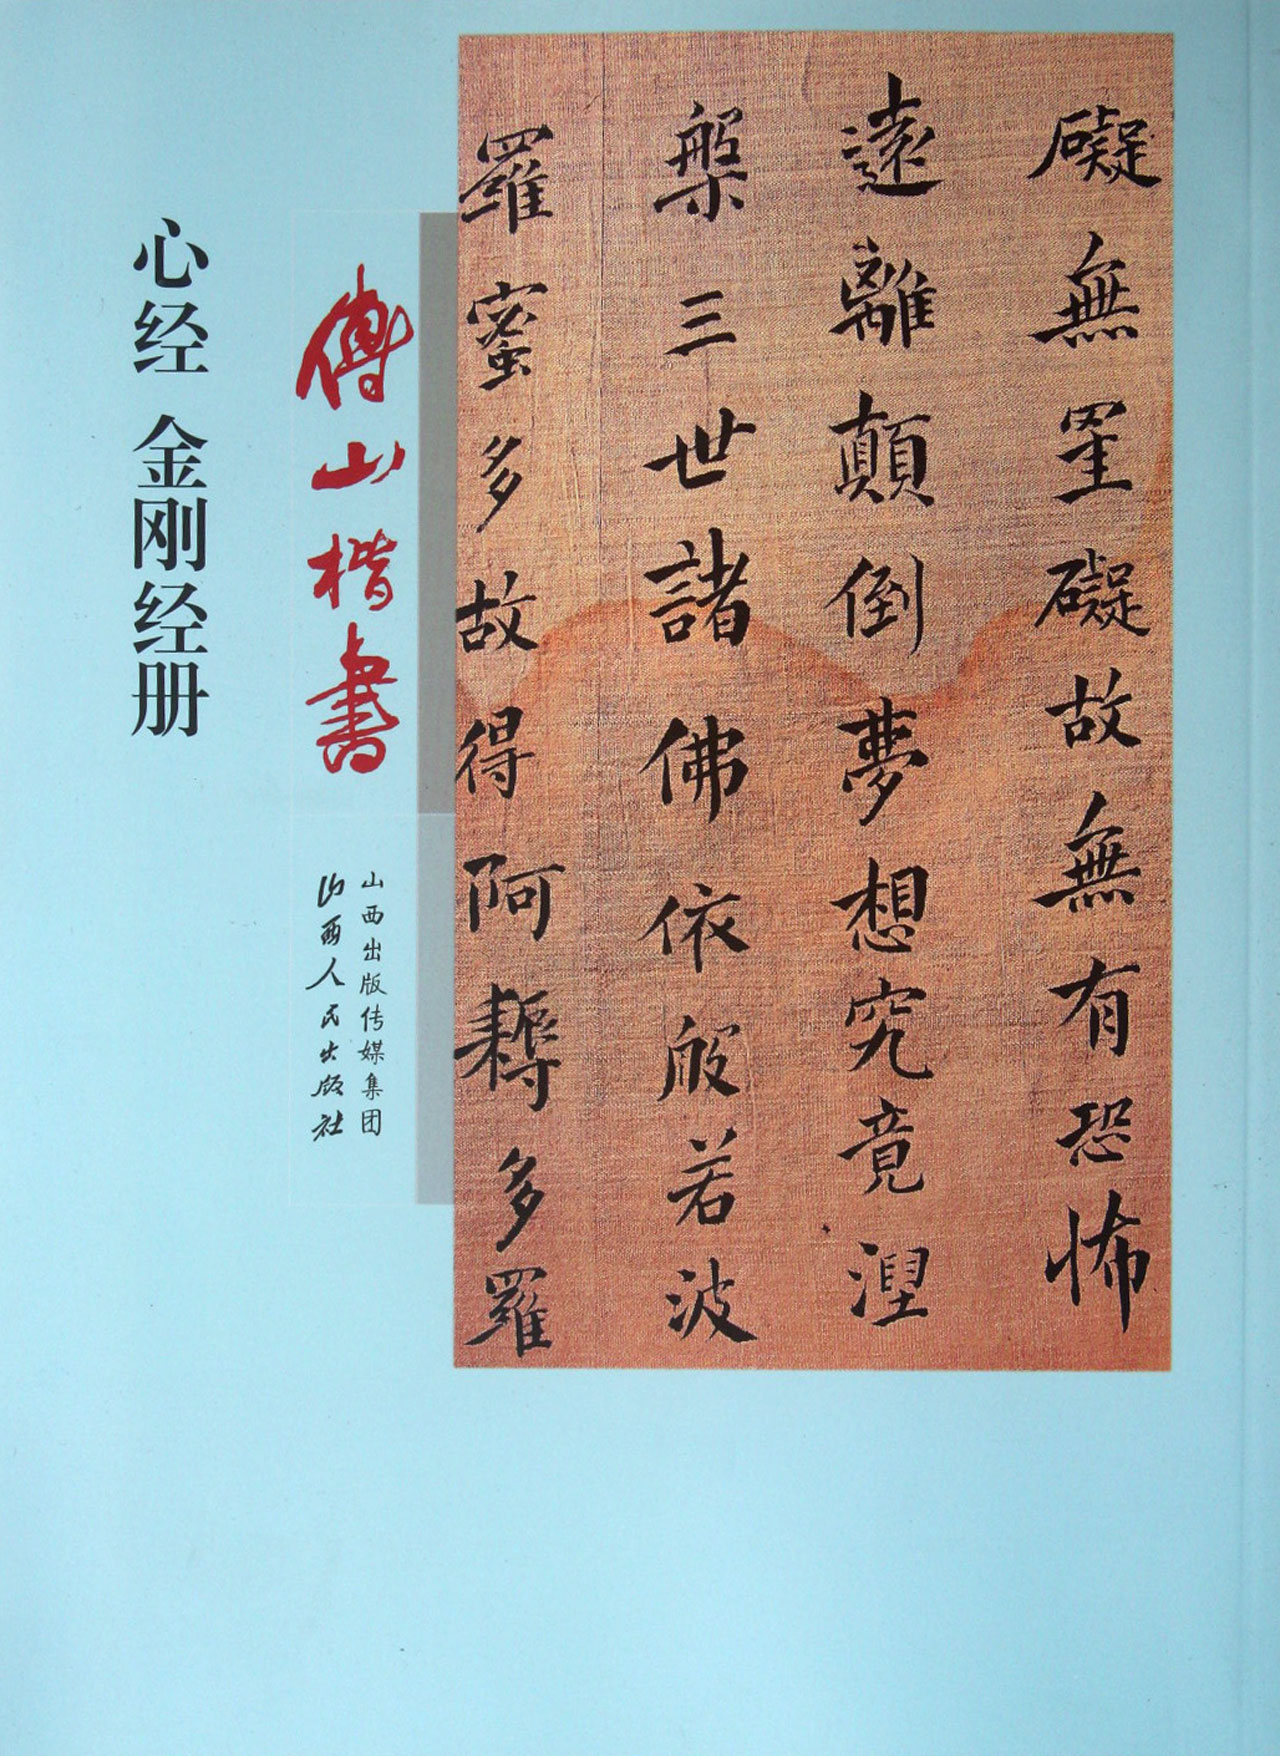 礙無罣礙故無有恐怖
遠離顛倒夢想究竟涅
槃三世諸佛依般若波
羅蜜多故得阿耨多羅
傅山楷書
山西出版传媒集团
山西人民出版社
心经 金刚经册